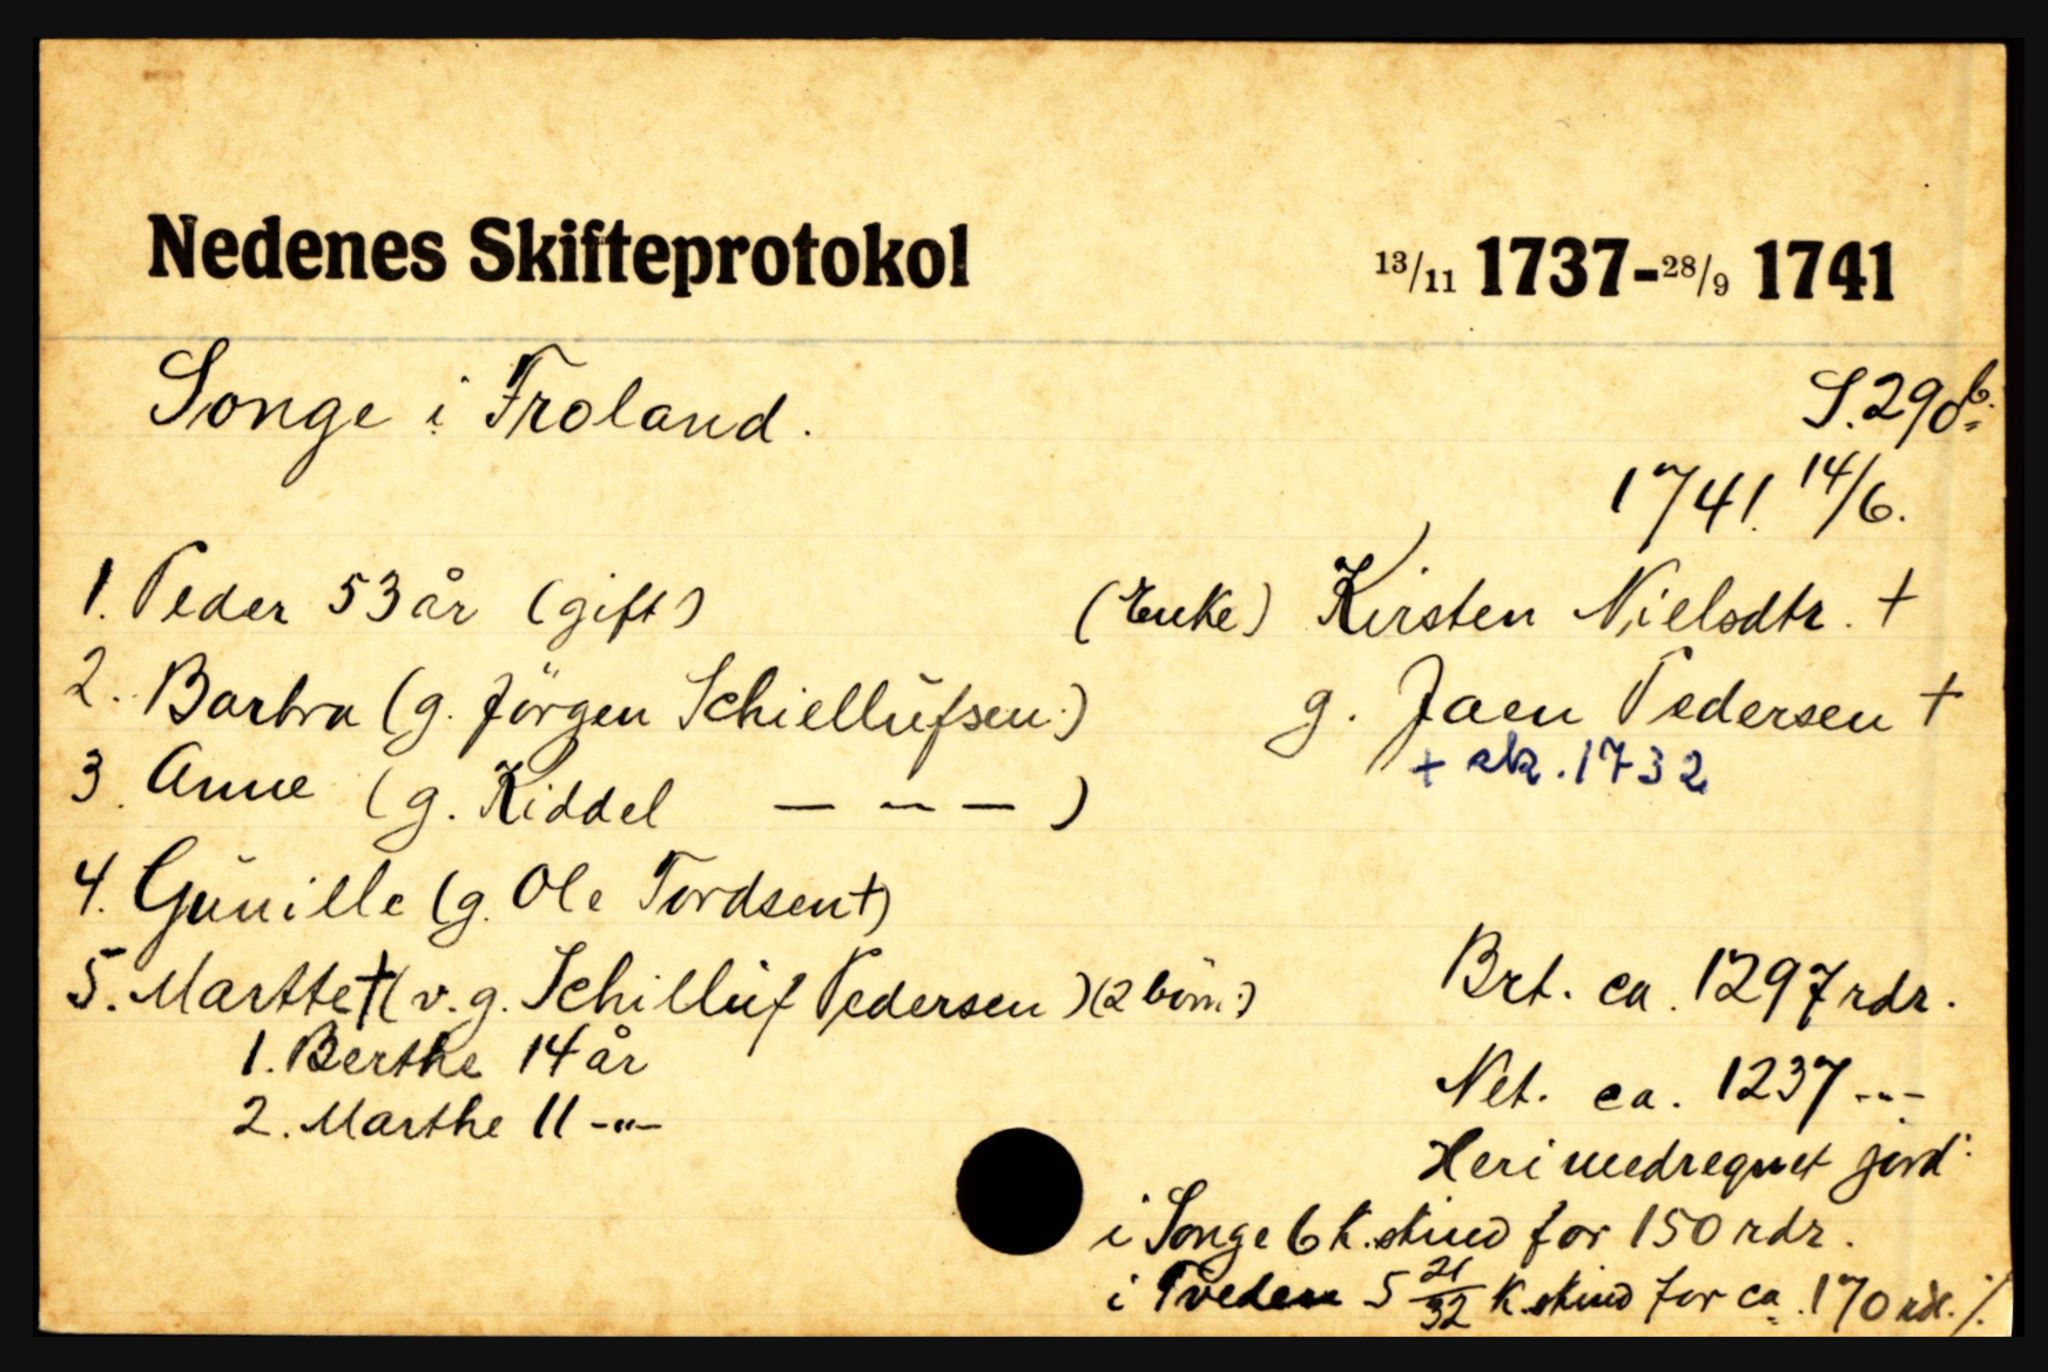 Nedenes Skifteprotokol 13/11 1737-28/9 1741
Songe i Froland. S. 290b.
1741. 14/6.
1. Peder 53 år (gift) (Enke) Kirsten Nielsdtr. +
2. Barbra (g. Jörgen Schiellufsen.) g. Jaen Pedersen +
+ sk. 1732
3. Anne (g. Kiddel — — — )
4. Gunille (g. Ole Tordsen +)
5. Marthe + (v. g. Schilluf Pedersen) (2 börn:) Brt. ca. 1297 rdr.
1. Berthe 14 år
Net. ca. 1237 -"-
2. Marthe 11 -"-
Heri medregnet jord:
i Songe 6 k. skind for 150 rdr.
i Tveden 5 21/32 k. skind for ca. 170 rdr. ./.